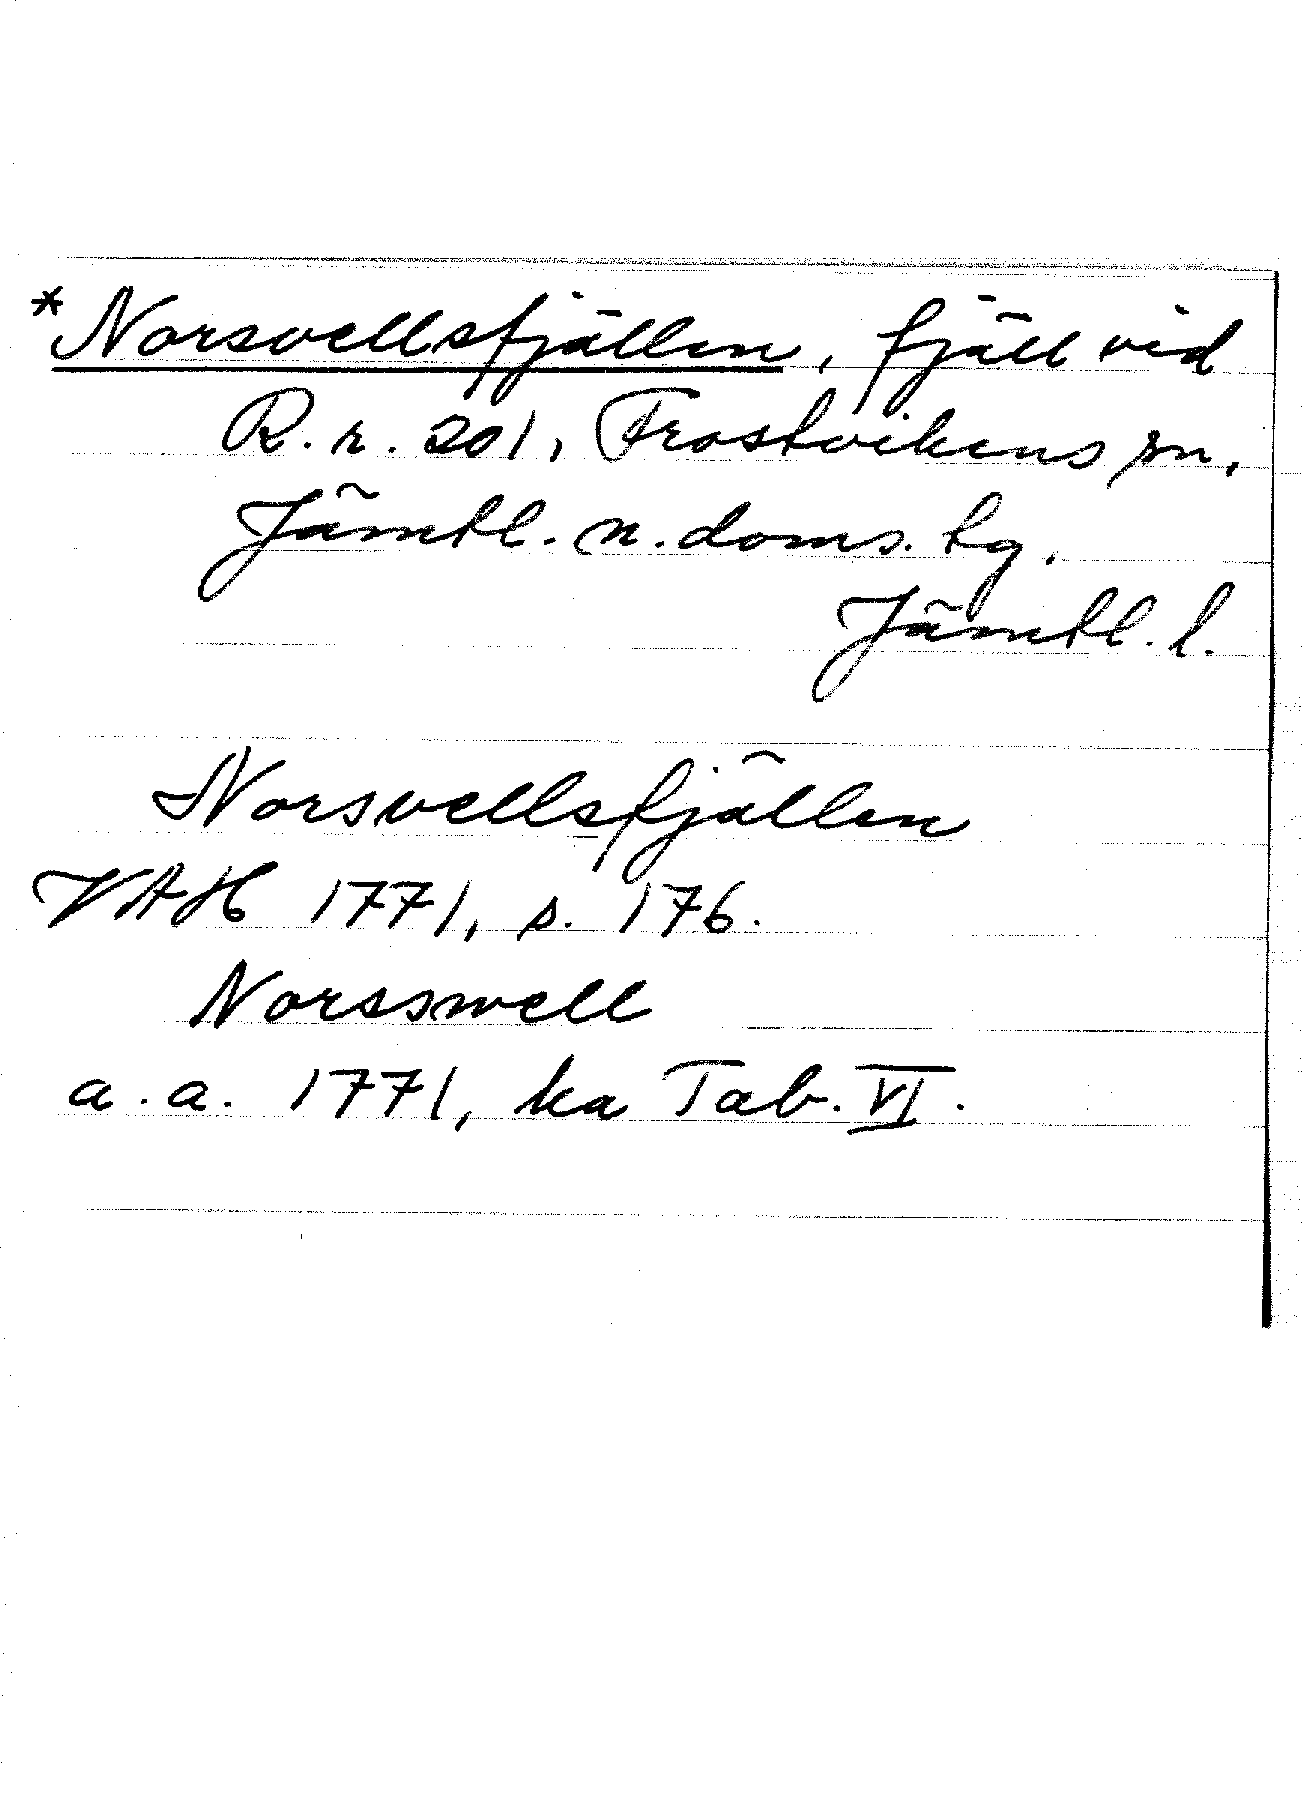 *Norsvellsfjällen, fjäll vid
R. r. 201, Frostvikens sn,
Jämtl. n. doms. tg.
Jämtl. l.
Norsvellsfjällen
VAH 1771, s. 176.
Norsswell
a. a. 1771, ka Tab. VI.